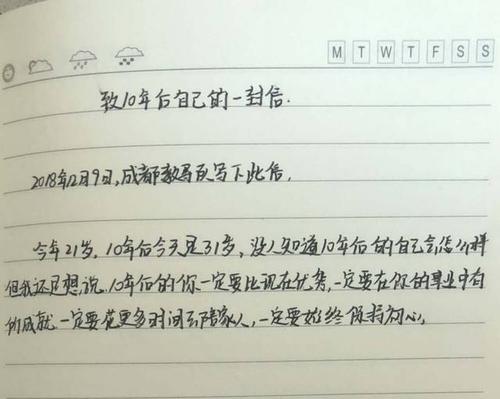 M T W T F S S
致10年后自己的一封信.
2018年12月9日,成都教写下此信.
今年21岁, 10年后今天是31岁, 没人知道10年后的自己会怎么样
但我还是想说, 10年后的你一定要比现在优秀, 一定要在你的事业中有
的成就 一定要花更多时间去陪家人, 一定要始终保持初心,